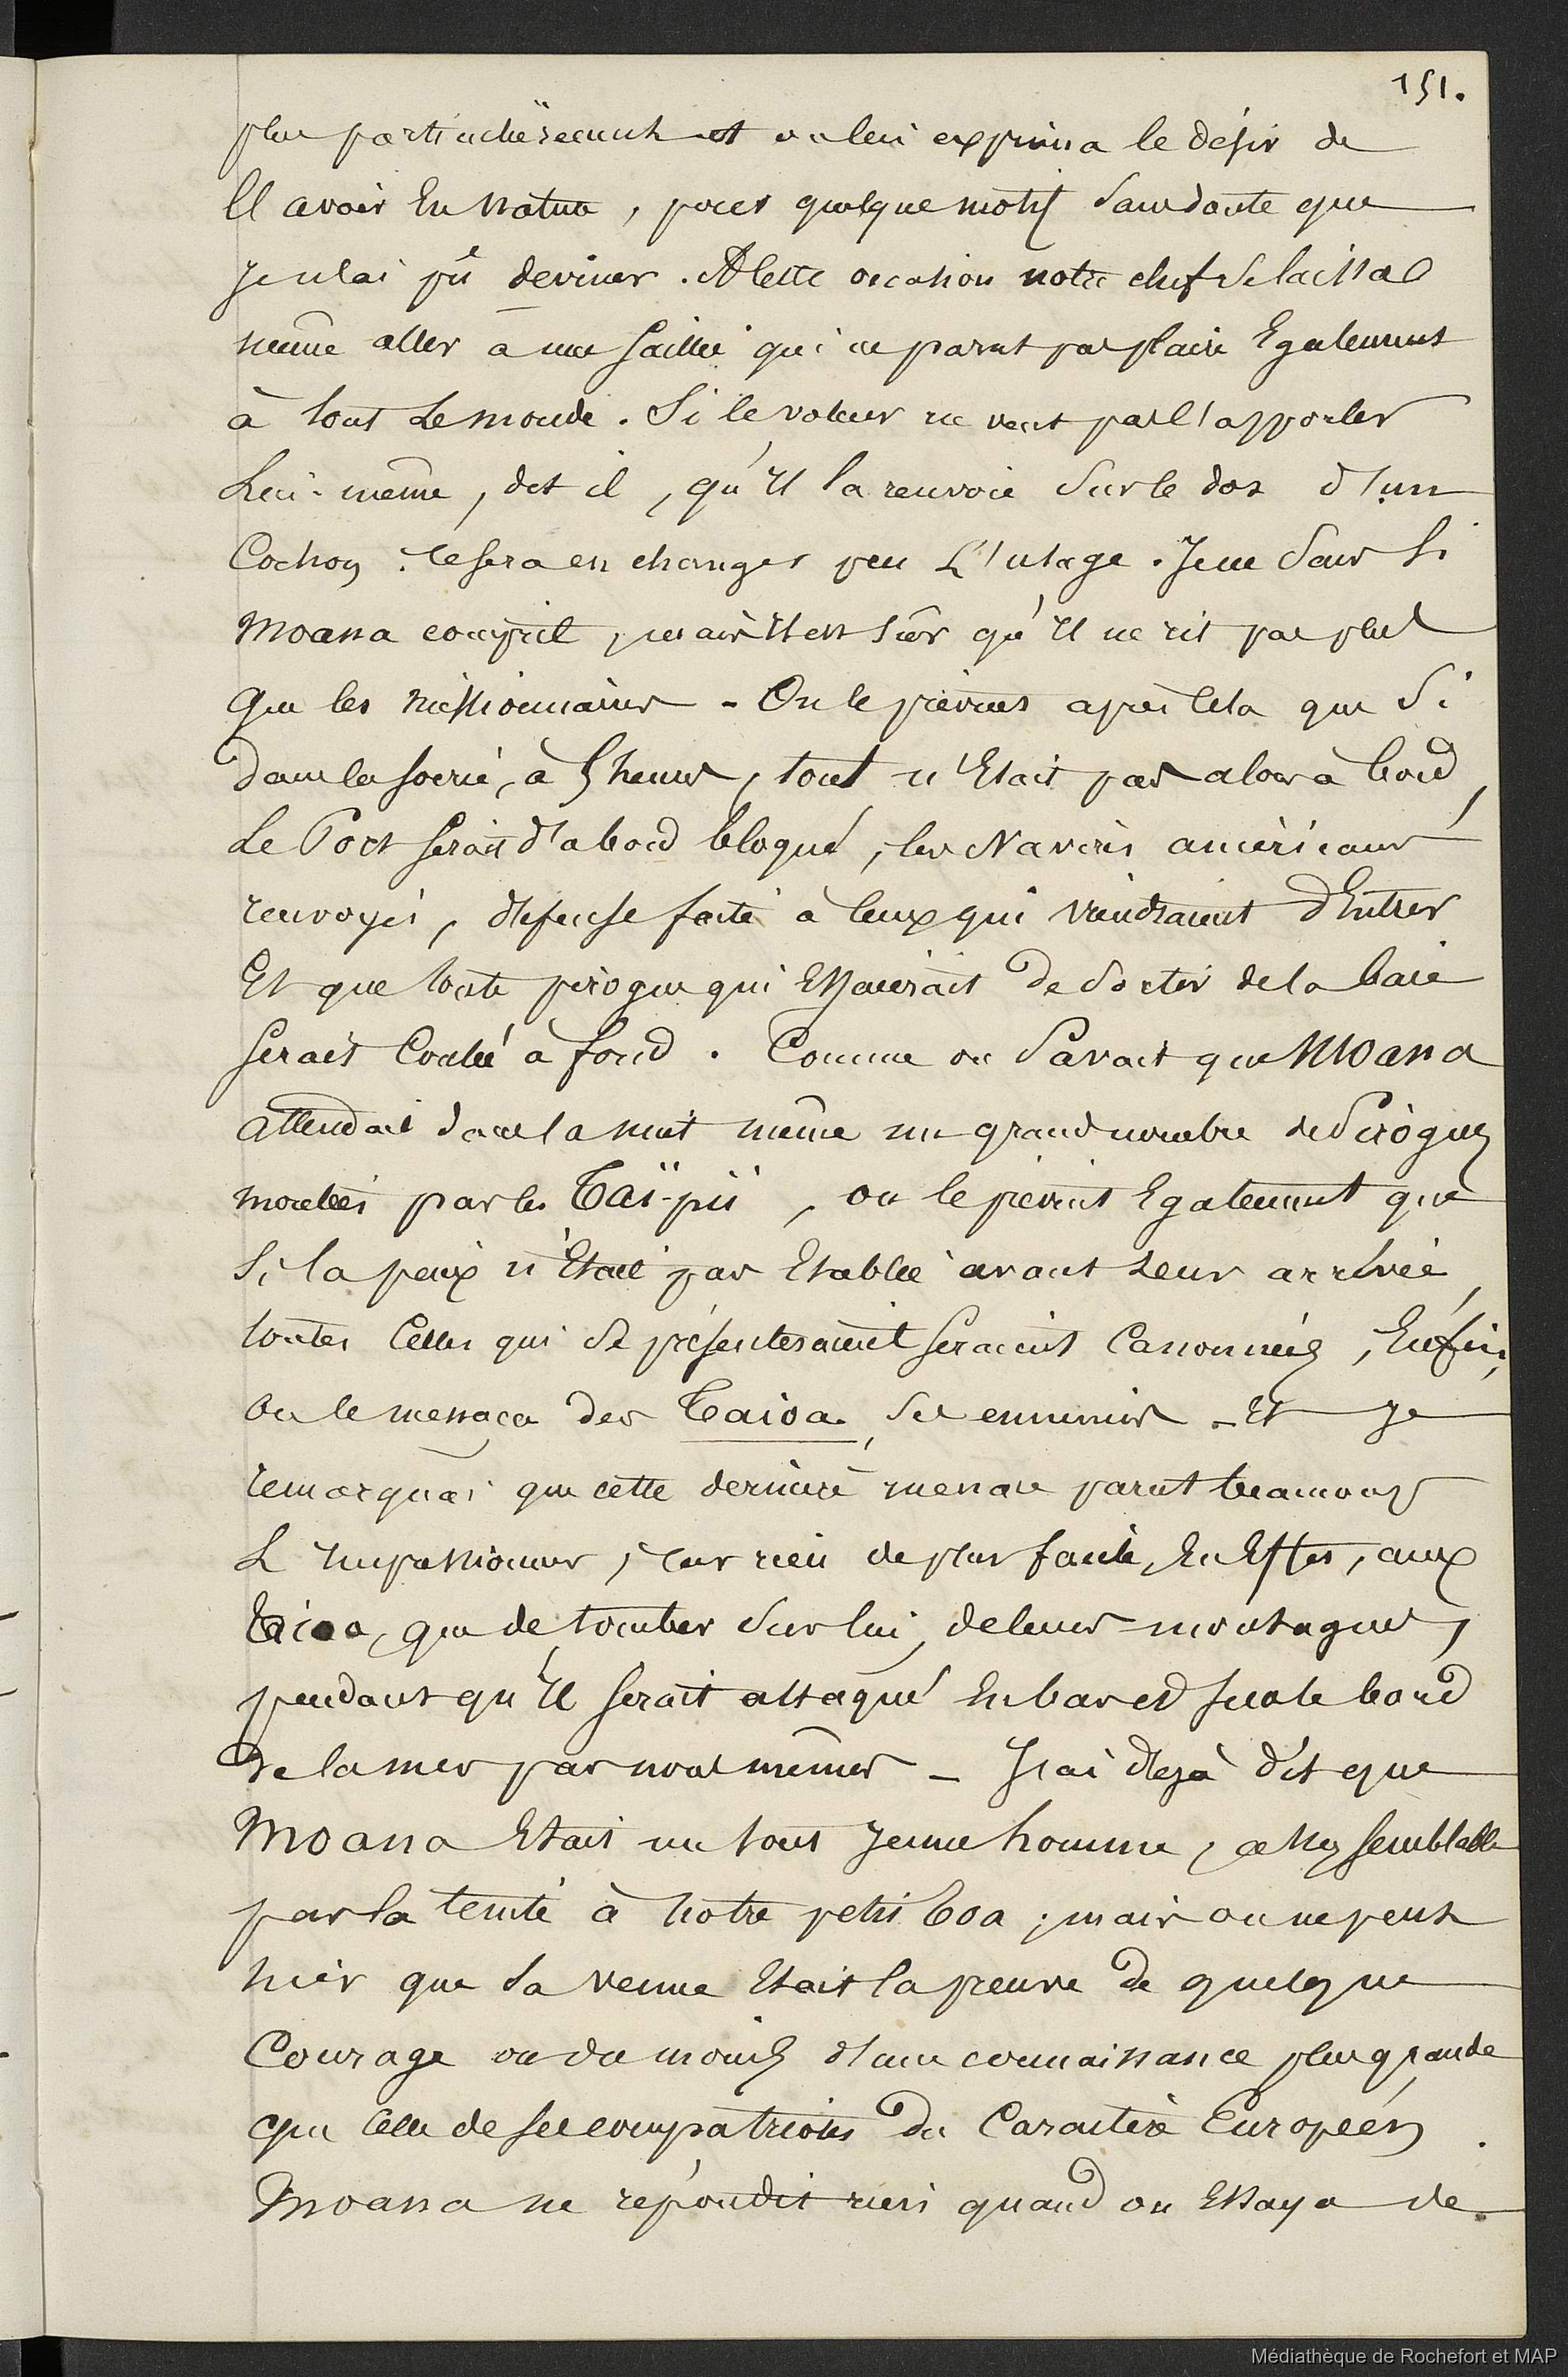 151.
plus particulièrement et on lui exprima le désir de
l'avoir en nature, pour quelque motif sans doute que
je n'ai pû deviner. A cette occasion notre chef se laissa
même aller à une saillie qui ne parut pas plaire Egalement
à tout le monde. Si le voleur ne veut pas l'apporter
Lui-même, dit il, qu'Il la renvoie sur le dos d'un
Cochon, ce sera en changer peu L'usage. Je ne sais si
Moana comprit, mais Il est sûr qu'Il ne rit pas plus
que les missionnaires - On le prévint après cela que si
dans la soirée, à 5 heures, tout n'Etait pas alors à bord,
Le Port serait d'abord bloqué, les Navires américains
renvoyés, défense faite à ceux qui viendraient d'Entrer
Et que toute pirogue qui Essaierait de sortir de la baie
serait Coulée à fond. Comme on savait que Moana
attendait dans la nuit même un grand nombre de Pirogues
montées par les Taï-pii, on le prévint Egalement que
si la paix n'Etait pas Etablie avant Leur arrivée,
toutes Celles qui se présenteraient seraient Canonnées, Enfin,
On le menaça des Taioa, ses ennemis - Et Je
remarquai que cette dernière menace parut beaucoup
L'impressionner, car rien de plus facile, En Effet, aux
Taioa, que de tomber sur lui, de leurs montagnes,
pendant qu'Il serait attaqué En bas et sur le bord
de la mer par nous mêmes - J'ai déjà dit que
Moana Etait un tout Jeune homme, assez semblable
par la teinte à notre petit Toa; mais on ne peut
nier que sa venue Etait la preuve de quelque
Courage ou du moins d'une connaissance plus grande
que Celle de ses compatriotes du Caractère Européen.
Moana ne répondit rien quand on Essaya de
Médiathèque de Rochefort et MAP